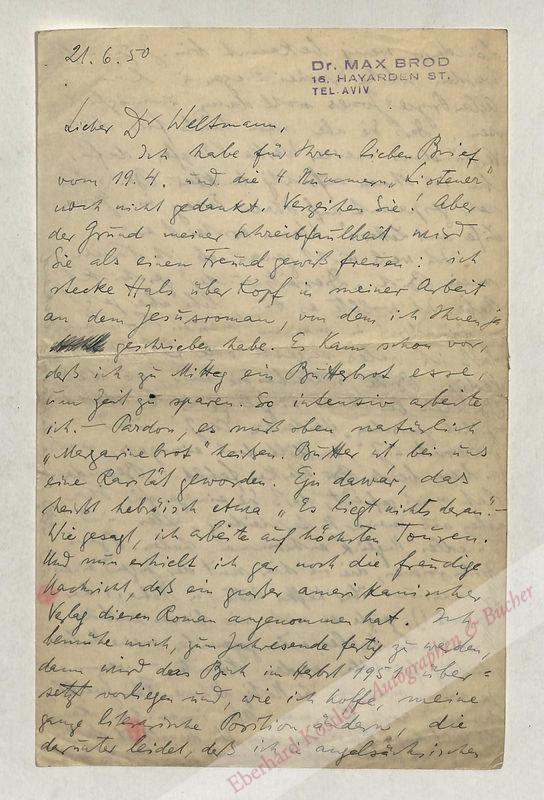 21.6.50
Dr. MAX BROD
16, HAYARDEN ST.
TEL-AVIV
Lieber Dr Weltmann,
Ich habe für Ihren lieben Brief
vom 19.4. und die 4 Nummern „Listener"
noch nicht gedankt. Verzeihen Sie! Aber
der Grund meiner Schreibfaulheit wird
Sie als einen Freund gewiß freuen: ich
stecke Hals über Kopf in meiner Arbeit
an dem Jesusroman, von dem ich Ihnen ja
geschrieben habe. Es kam schon vor,
daß ich zu Mittag ein Butterbrot esse,
um Zeit zu sparen. So intensiv arbeite
ich. – Pardon, es muß oben natürlich
„Margarinebrot" heißen. Butter ist bei uns
eine Rarität geworden. Ejn dawár, das
heißt hebräisch etwa „Es liegt nichts daran". –
Wie gesagt, ich arbeite auf höchsten Touren.
Und nun erhielt ich gar noch die freudige
Nachricht, daß ein großer amerikanischer
Verlag diesen Roman angenommen hat. Ich
bemühe mich, zum Jahresende fertig zu werden,
dann wird das Buch im Herbst 1951 über=
setzt vorliegen und, wie ich hoffe, meine
ganze literarische Position ändern, die
darunter leidet, daß ich in angelsächsischen
Eberhard Köstler Autographen & Bücher